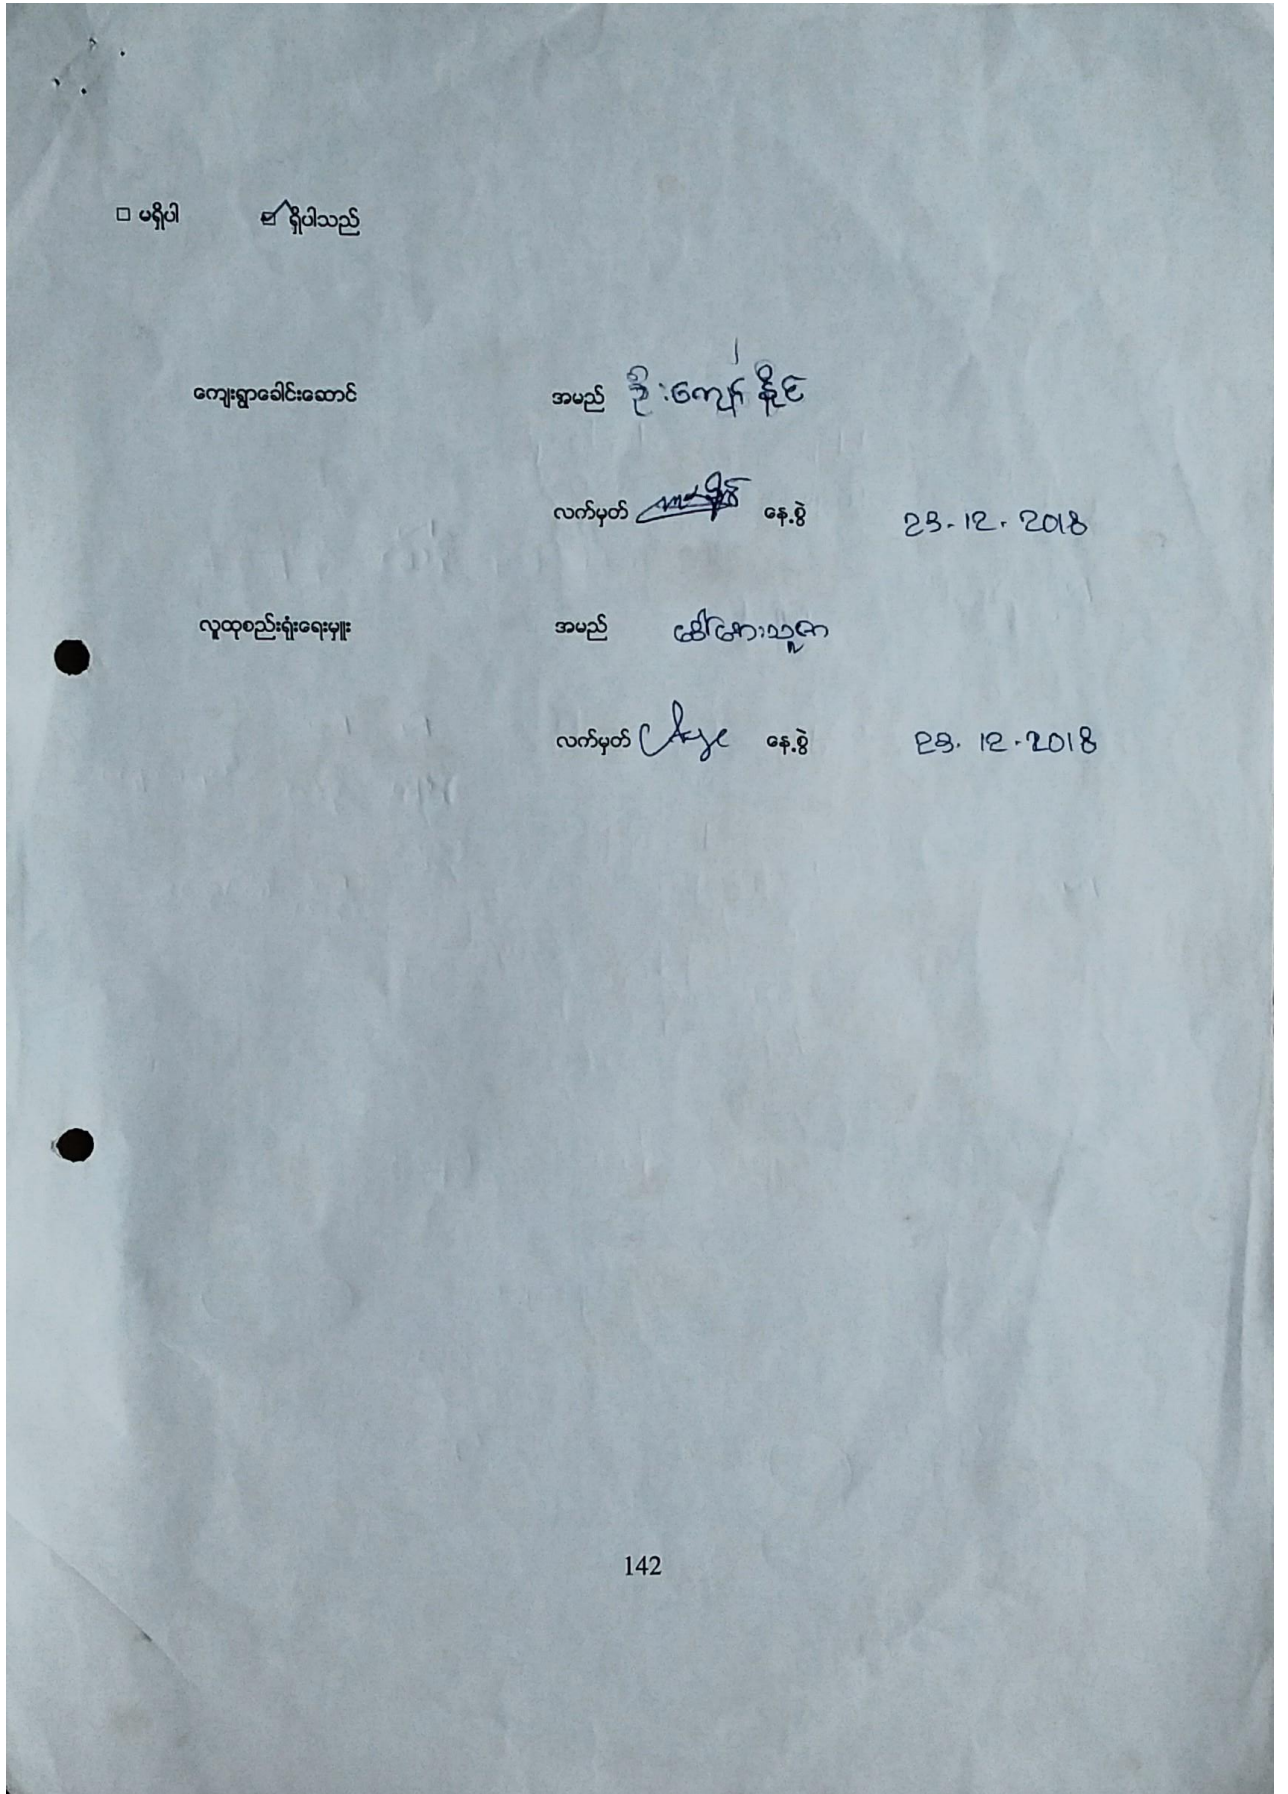 □ မရှိပါ ☑ ရှိပါသည်
ကျေးရွာခေါင်းဆောင် အမည် ဦးကျော်နိုင်
လက်မှတ် နေ့စွဲ 23.12.2018
လူထုစည်းရုံးရေးမှူး အမည် ဒေါ်အေးသူဇာ
လက်မှတ် Aye နေ့စွဲ 23.12.2018
142